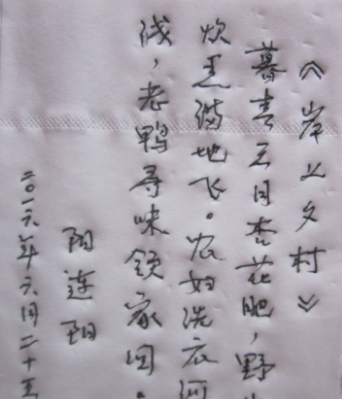 《岸上夕村》
暮春三月杏花肥，野
炊黑满地飞。农妇洗衣河
浅，老鸭寻味领家回。
阳连阳
二〇一六年六月二十五